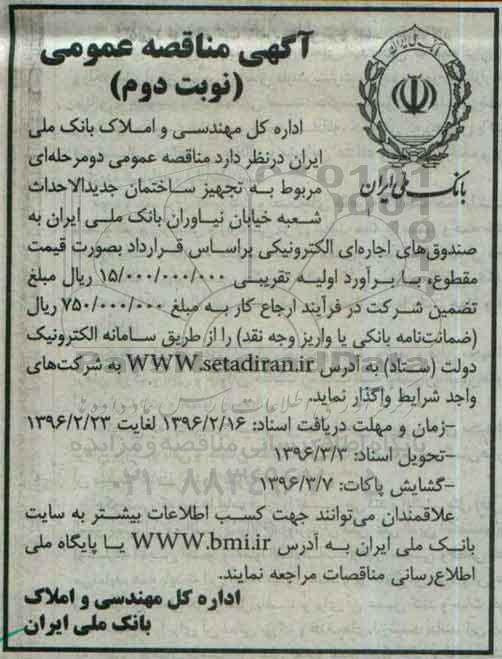 آگهی مناقصه عمومی
(نوبت دوم)
بانک ملی ایران
اداره کل مهندسی و املاک بانک ملی
ایران درنظر دارد مناقصه عمومی دومرحله‌ای
مربوط به تجهیز ساختمان جدیدالاحداث
شعبه خیابان نیاوران بانک ملی ایران به
صندوق‌های اجاره‌ای الکترونیکی براساس قرارداد بصورت قیمت
مقطوع، با برآورد اولیه تقریبی ۱۵/۰۰۰/۰۰۰/۰۰۰ ریال مبلغ
تضمین شرکت در فرآیند ارجاع کار به مبلغ ۷۵۰/۰۰۰/۰۰۰ ریال
(ضمانت‌نامه بانکی یا واریز وجه نقد) را از طریق سامانه الکترونیک
دولت (ستاد) به آدرس WWW.setadiran.ir به شرکت‌های
واجد شرایط واگذار نماید.
-زمان و مهلت دریافت اسناد: ۱۳۹۶/۲/۱۶ لغایت ۱۳۹۶/۲/۲۳
-تحویل اسناد: ۱۳۹۶/۳/۳
-گشایش پاکات: ۱۳۹۶/۳/۷
علاقمندان می‌توانند جهت کسب اطلاعات بیشتر به سایت
بانک ملی ایران به آدرس WWW.bmi.ir یا پایگاه ملی
اطلاع‌رسانی مناقصات مراجعه نمایند.
اداره کل مهندسی و املاک
بانک ملی ایران